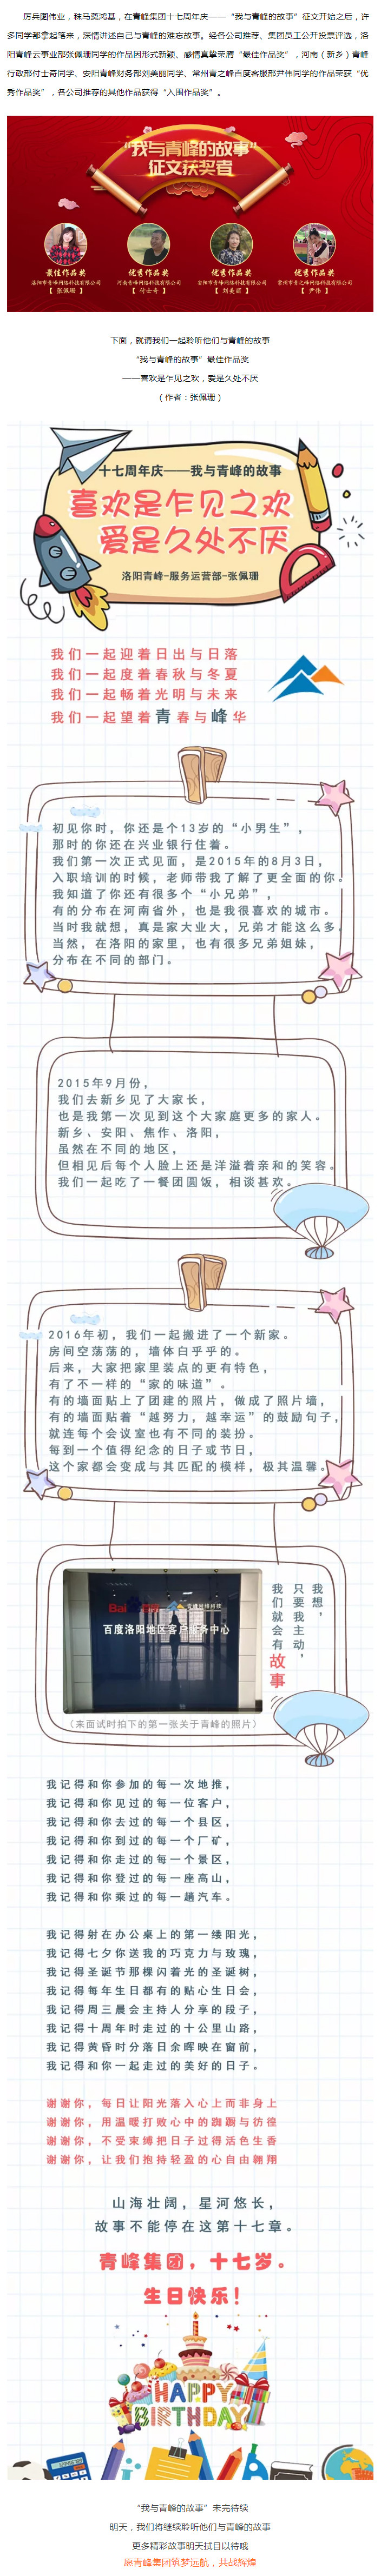 厉兵图伟业，秣马奠鸿基，在青峰集团十七周年庆——“我与青峰的故事”征文开始之后，许
多同学都拿起笔来，深情讲述自己与青峰的难忘故事。经各公司推荐、集团员工公开投票评选，洛
阳青峰云事业部张佩珊同学的作品因形式新颖、感情真挚荣膺“最佳作品奖”，河南（新乡）青峰
行政部付士奇同学、安阳青峰财务部刘美丽同学、常州青之峰百度客服部尹伟同学的作品荣获“优
秀作品奖”，各公司推荐的其他作品获得“入围作品奖”。
“我与青峰的故事”
征文获奖者
最佳作品奖
洛阳市青峰网络科技有限公司
【 张佩珊 】
优秀作品奖
河南青峰网络科技有限公司
【 付士奇 】
优秀作品奖
安阳市青峰网络科技有限公司
【 刘美丽 】
优秀作品奖
常州市青之峰网络科技有限公司
【 尹伟 】
下面，就请我们一起聆听他们与青峰的故事
“我与青峰的故事”最佳作品奖
——喜欢是乍见之欢，爱是久处不厌
（作者：张佩珊）
十七周年庆——我与青峰的故事
喜欢是乍见之欢
爱是久处不厌
洛阳青峰-服务运营部-张佩珊
我们一起迎着日出与日落
我们一起度着春秋与冬夏
我们一起畅着光明与未来
我们一起望着青春与峰华
初见你时，你还是个13岁的“小男生”，
那时的你还在兴业银行住着。
我们第一次正式见面，是2015年的8月3日，
入职培训的时候，老师带我了解了更全面的你。
我知道了你还有很多个“小兄弟”，
有的分布在河南省外，也是我很喜欢的城市。
当时我就想，真是家大业大，兄弟才能这么多。
当然，在洛阳的家里，也有很多兄弟姐妹，
分布在不同的部门。
2015年9月份，
我们去新乡见了大家长，
也是我第一次见到这个大家庭更多的家人。
新乡、安阳、焦作、洛阳，
虽然在不同的地区，
但相见后每个人脸上还是洋溢着亲和的笑容。
我们一起吃了一餐团圆饭，相谈甚欢。
2016年初，我们一起搬进了一个新家。
房间空荡荡的，墙体白乎乎的。
后来，大家把家里装点的更有特色，
有了不一样的“家的味道”。
有的墙面贴上了团建的照片，做成了照片墙，
有的墙面贴着“越努力，越幸运”的鼓励句子，
就连每个会议室也有不同的装扮。
每到一个值得纪念的日子或节日，
这个家都会变成与其匹配的模样，极其温馨。
百度洛阳地区客户服务中心
（来面试时拍下的第一张关于青峰的照片）
我想，
只要我主动，
我们就会有故事
我记得和你参加的每一次地推，
我记得和你见过的每一位客户，
我记得和你去过的每一个县区，
我记得和你到过的每一个厂矿，
我记得和你走过的每一个景区，
我记得和你登过的每一座高山，
我记得和你乘过的每一趟汽车。
我记得射在办公桌上的第一缕阳光，
我记得七夕你送我的巧克力与玫瑰，
我记得圣诞节那棵闪着光的圣诞树，
我记得每年生日都有的贴心生日会，
我记得周三晨会主持人分享的段子，
我记得十周年时走过的十公里山路，
我记得黄昏时分落日余晖映在窗前，
我记得和你一起走过的美好的日子。
谢谢你，每日让阳光落入心上而非身上
谢谢你，用温暖打败心中的踟蹰与彷徨
谢谢你，不受束缚把日子过得活色生香
谢谢你，让我们抱持轻盈的心自由翱翔
山海壮阔，星河悠长，
故事不能停在这第十七章。
青峰集团，十七岁。
生日快乐！
HAPPY
BIRTHDAY
“我与青峰的故事”未完待续
明天，我们将继续聆听他们与青峰的故事
更多精彩故事明天拭目以待哦
愿青峰集团筑梦远航，共战辉煌